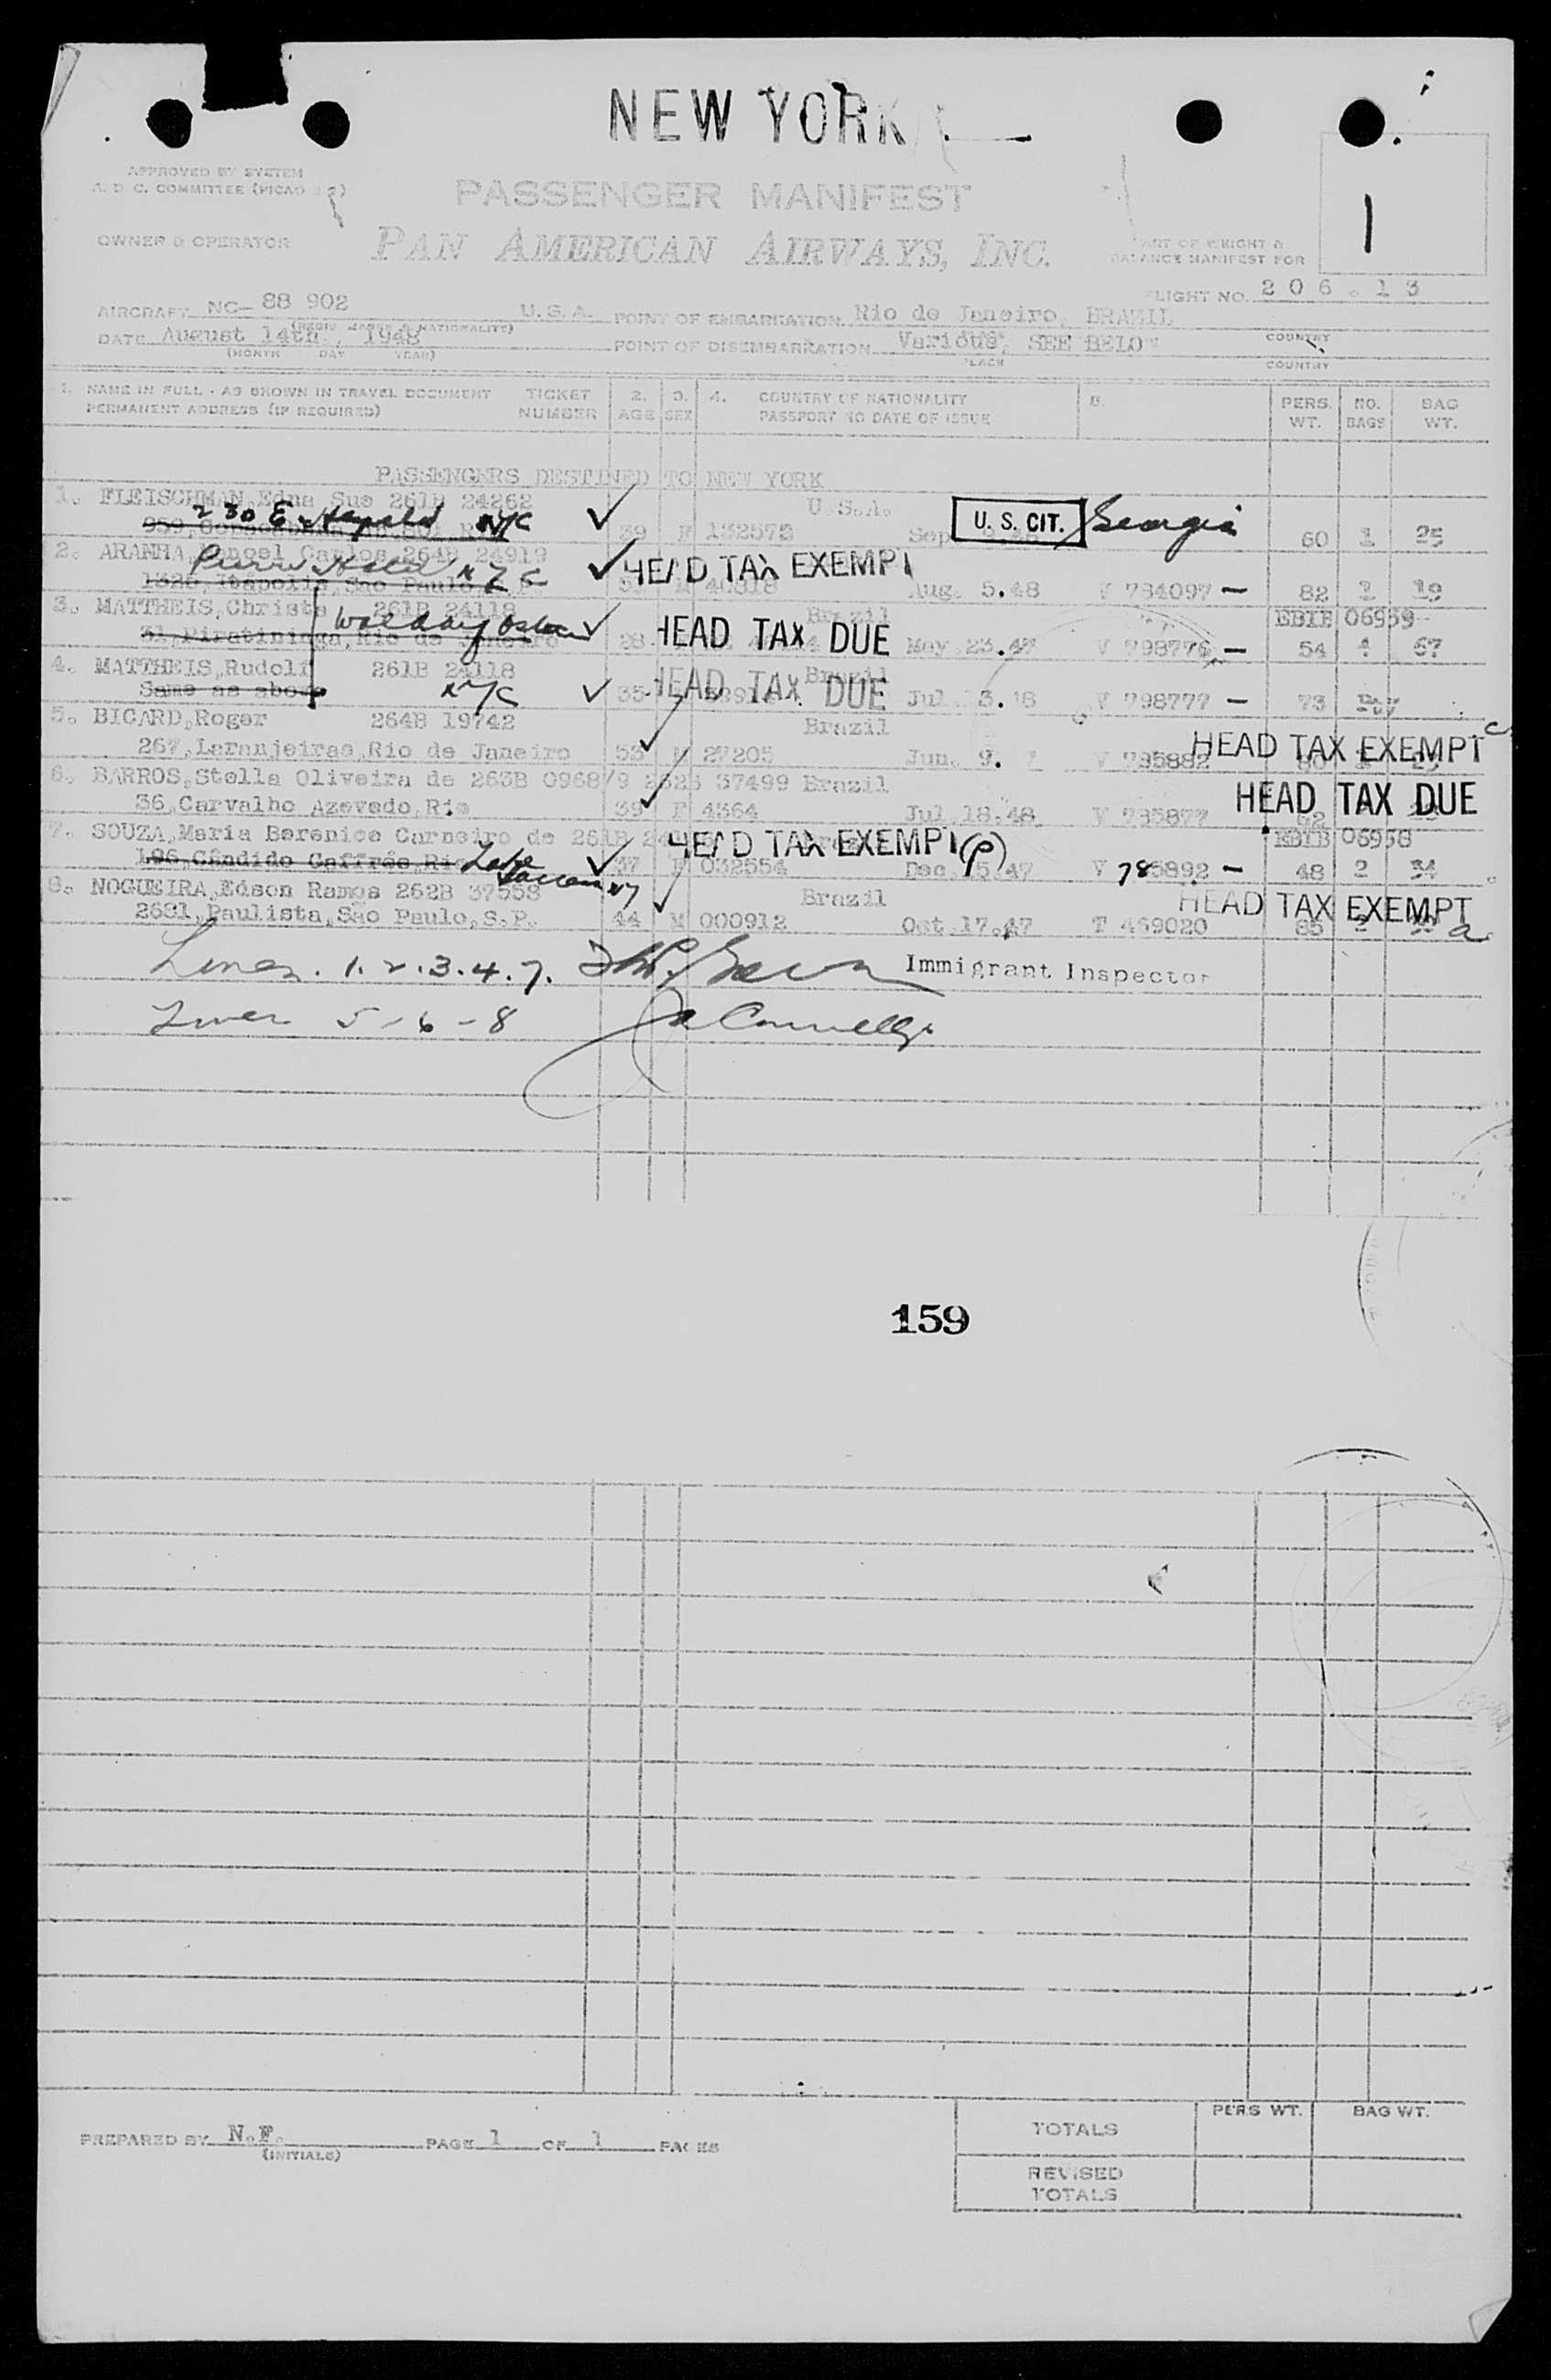 NEW YORK
APPROVED BY SYSTEM
A. D. C. COMMITTEE (PICAO
PASSENGER MANIFEST
1
OWNER & OPERATOR
PAN AMERICAN AIRWAYS, INC.
PART OF WEIGHT &
BALANCE MANIFEST FOR
FLIGHT NO. 206.13
AIRCRAFT NC- 88 902 U.S.A. POINT OF EMBARKATION Rio de Janeiro, BRAZIL
(REGIS. MARKS & NATIONALITY) COUNTRY
DATE August 14th, 1948 POINT OF DISEMBARKATION Various, SEE BELOW
(MONTH DAY YEAR) PLACE COUNTRY
1. NAME IN FULL - AS SHOWN IN TRAVEL DOCUMENT TICKET 2. 3. 4. COUNTRY OF NATIONALITY 5. PERS. NO. BAG
PERMANENT ADDRESS (IF REQUIRED) NUMBER AGE SEX PASSPORT NO DATE OF ISSUE WT. BAGS WT.
PASSENGERS DESTINED TO NEW YORK
1. FLEISCHMAN, Edna Sue 261B 24262 U.S.A.
230 E NYC 39 F 132573 Sep U. S. CIT. Georgia 60 1 25
2. ARANHA, Carlos 264B 24919
Pierre Hotel NYC HEAD TAX EXEMPT
1326, Itápolis, Sao Paulo, M 40818 Aug. 5.48 V 784097 — 82 1 19
3. MATTHEIS, Christa 261B 24118 Brazil EBIB 06959
31, Piratininga, Rio de Janeiro 28 HEAD TAX DUE May 23.47 V 798776 — 54 67
4. MATTHEIS, Rudolf 261B 24118 Brazil
Same as above NYC 35 HEAD TAX DUE Jul. V 798777 — 73
5. BICARD, Roger 264B 19742 Brazil
267, Laranjeiras, Rio de Janeiro 53 M 27205 Jun. 9. V 795882 HEAD TAX EXEMPT
6. BARROS, Stella Oliveira de 263B 0968/9 262B 37499 Brazil
36, Carvalho Azevedo, Rio 39 F 4364 Jul 18.48 V 795877 HEAD TAX DUE
7. SOUZA, Maria Berenice Carneiro de 261B HEAD TAX EXEMPT (P) EBIB 06958
196, Cândido Gaffrée, Rio 37 F 032554 Dec. 5.47 V 785892 — 48 2 34
8. NOGUEIRA, Edson Ramos 262B 37558 Brazil HEAD TAX EXEMPT
2681, Paulista, Sao Paulo, S.P. 44 M 000912 Oct.17.47 T 469020 85 2
Lines. 1. 2. 3. 4. 7. Immigrant Inspector
Lines 5-6-8
159
PREPARED BY N.F. PAGE 1 OF 1 PAGES
(INITIALS)
PERS WT. BAG WT.
TOTALS
REVISED
TOTALS